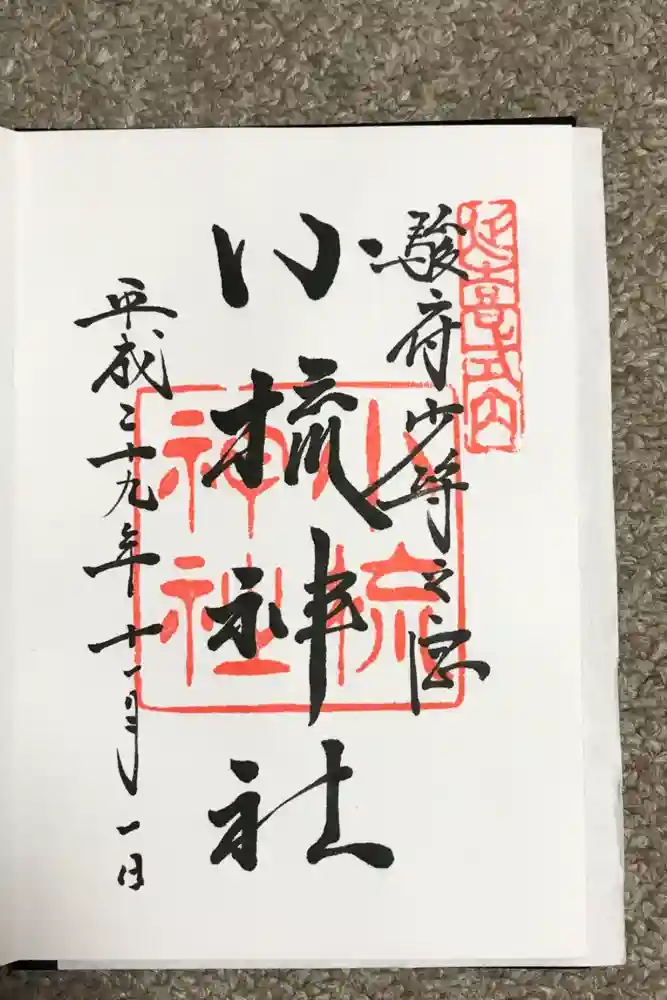 延喜式内
駿府少将之宮
小梳神社
小梳
神社
平成二十九年十一月一日